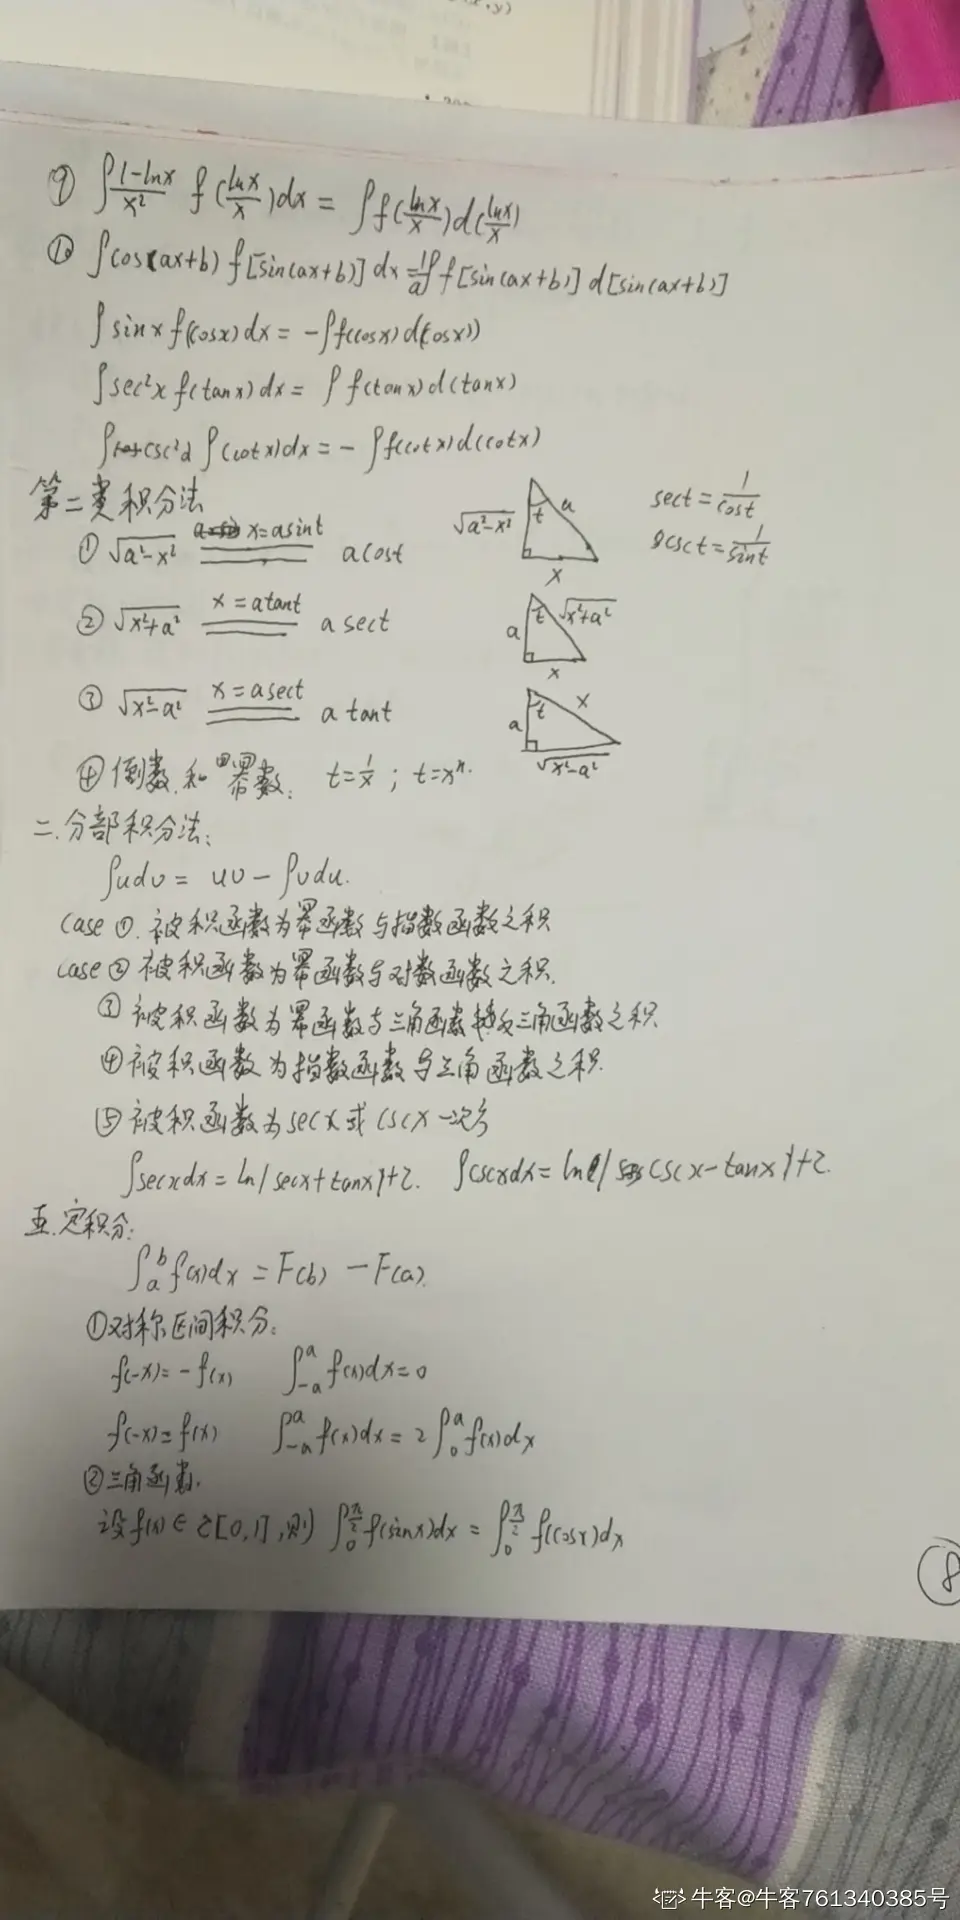 ,y)
⑨ ∫(1-lnx)/x² f(lnx/x)dx = ∫f(lnx/x)d(lnx/x)
⑩ ∫cos(ax+b) f[sin(ax+b)] dx = 1/a ∫f[sin(ax+b)] d[sin(ax+b)]
∫sinx f(cosx)dx = -∫f(cosx)d(cosx)
∫sec²x f(tanx)dx = ∫f(tanx)d(tanx)
csc² ∫(cotx)dx = -∫f(cotx)d(cotx)
第二类积分法
① √(a²-x²) x=asint acost
√(a²-x²) t a x
sect = 1/cost
csct = 1/sint
② √(x²+a²) x=atant asect
a t √(x²+a²) x
③ √(x²-a²) x=asect atant
a t x √(x²-a²)
④ 倒数和幂数: t=1/x ; t=xⁿ.
二.分部积分法:
∫udv = uv - ∫vdu.
case ①. 被积函数为幂函数与指数函数之积
case ② 被积函数为幂函数与对数函数之积.
③ 被积函数为幂函数与三角函数 反三角函数之积.
④ 被积函数为指数函数与三角函数之积.
⑤ 被积函数为secx或cscx一次方
∫secxdx = ln|secx+tanx|+C. ∫cscxdx = ln|cscx-tanx|+C.
五.定积分:
∫ₐᵇf(x)dx = F(b) - F(a).
①对称区间积分:
f(-x)=-f(x) ∫₋ₐᵃ f(x)dx=0
f(-x)=f(x) ∫₋ₐᵃ f(x)dx = 2∫₀ᵃ f(x)dx
②三角函数.
设f(x)∈C[0,1],则 ∫₀^(π/2) f(sinx)dx = ∫₀^(π/2) f(cosx)dx
⑧
牛客@牛客761340385号